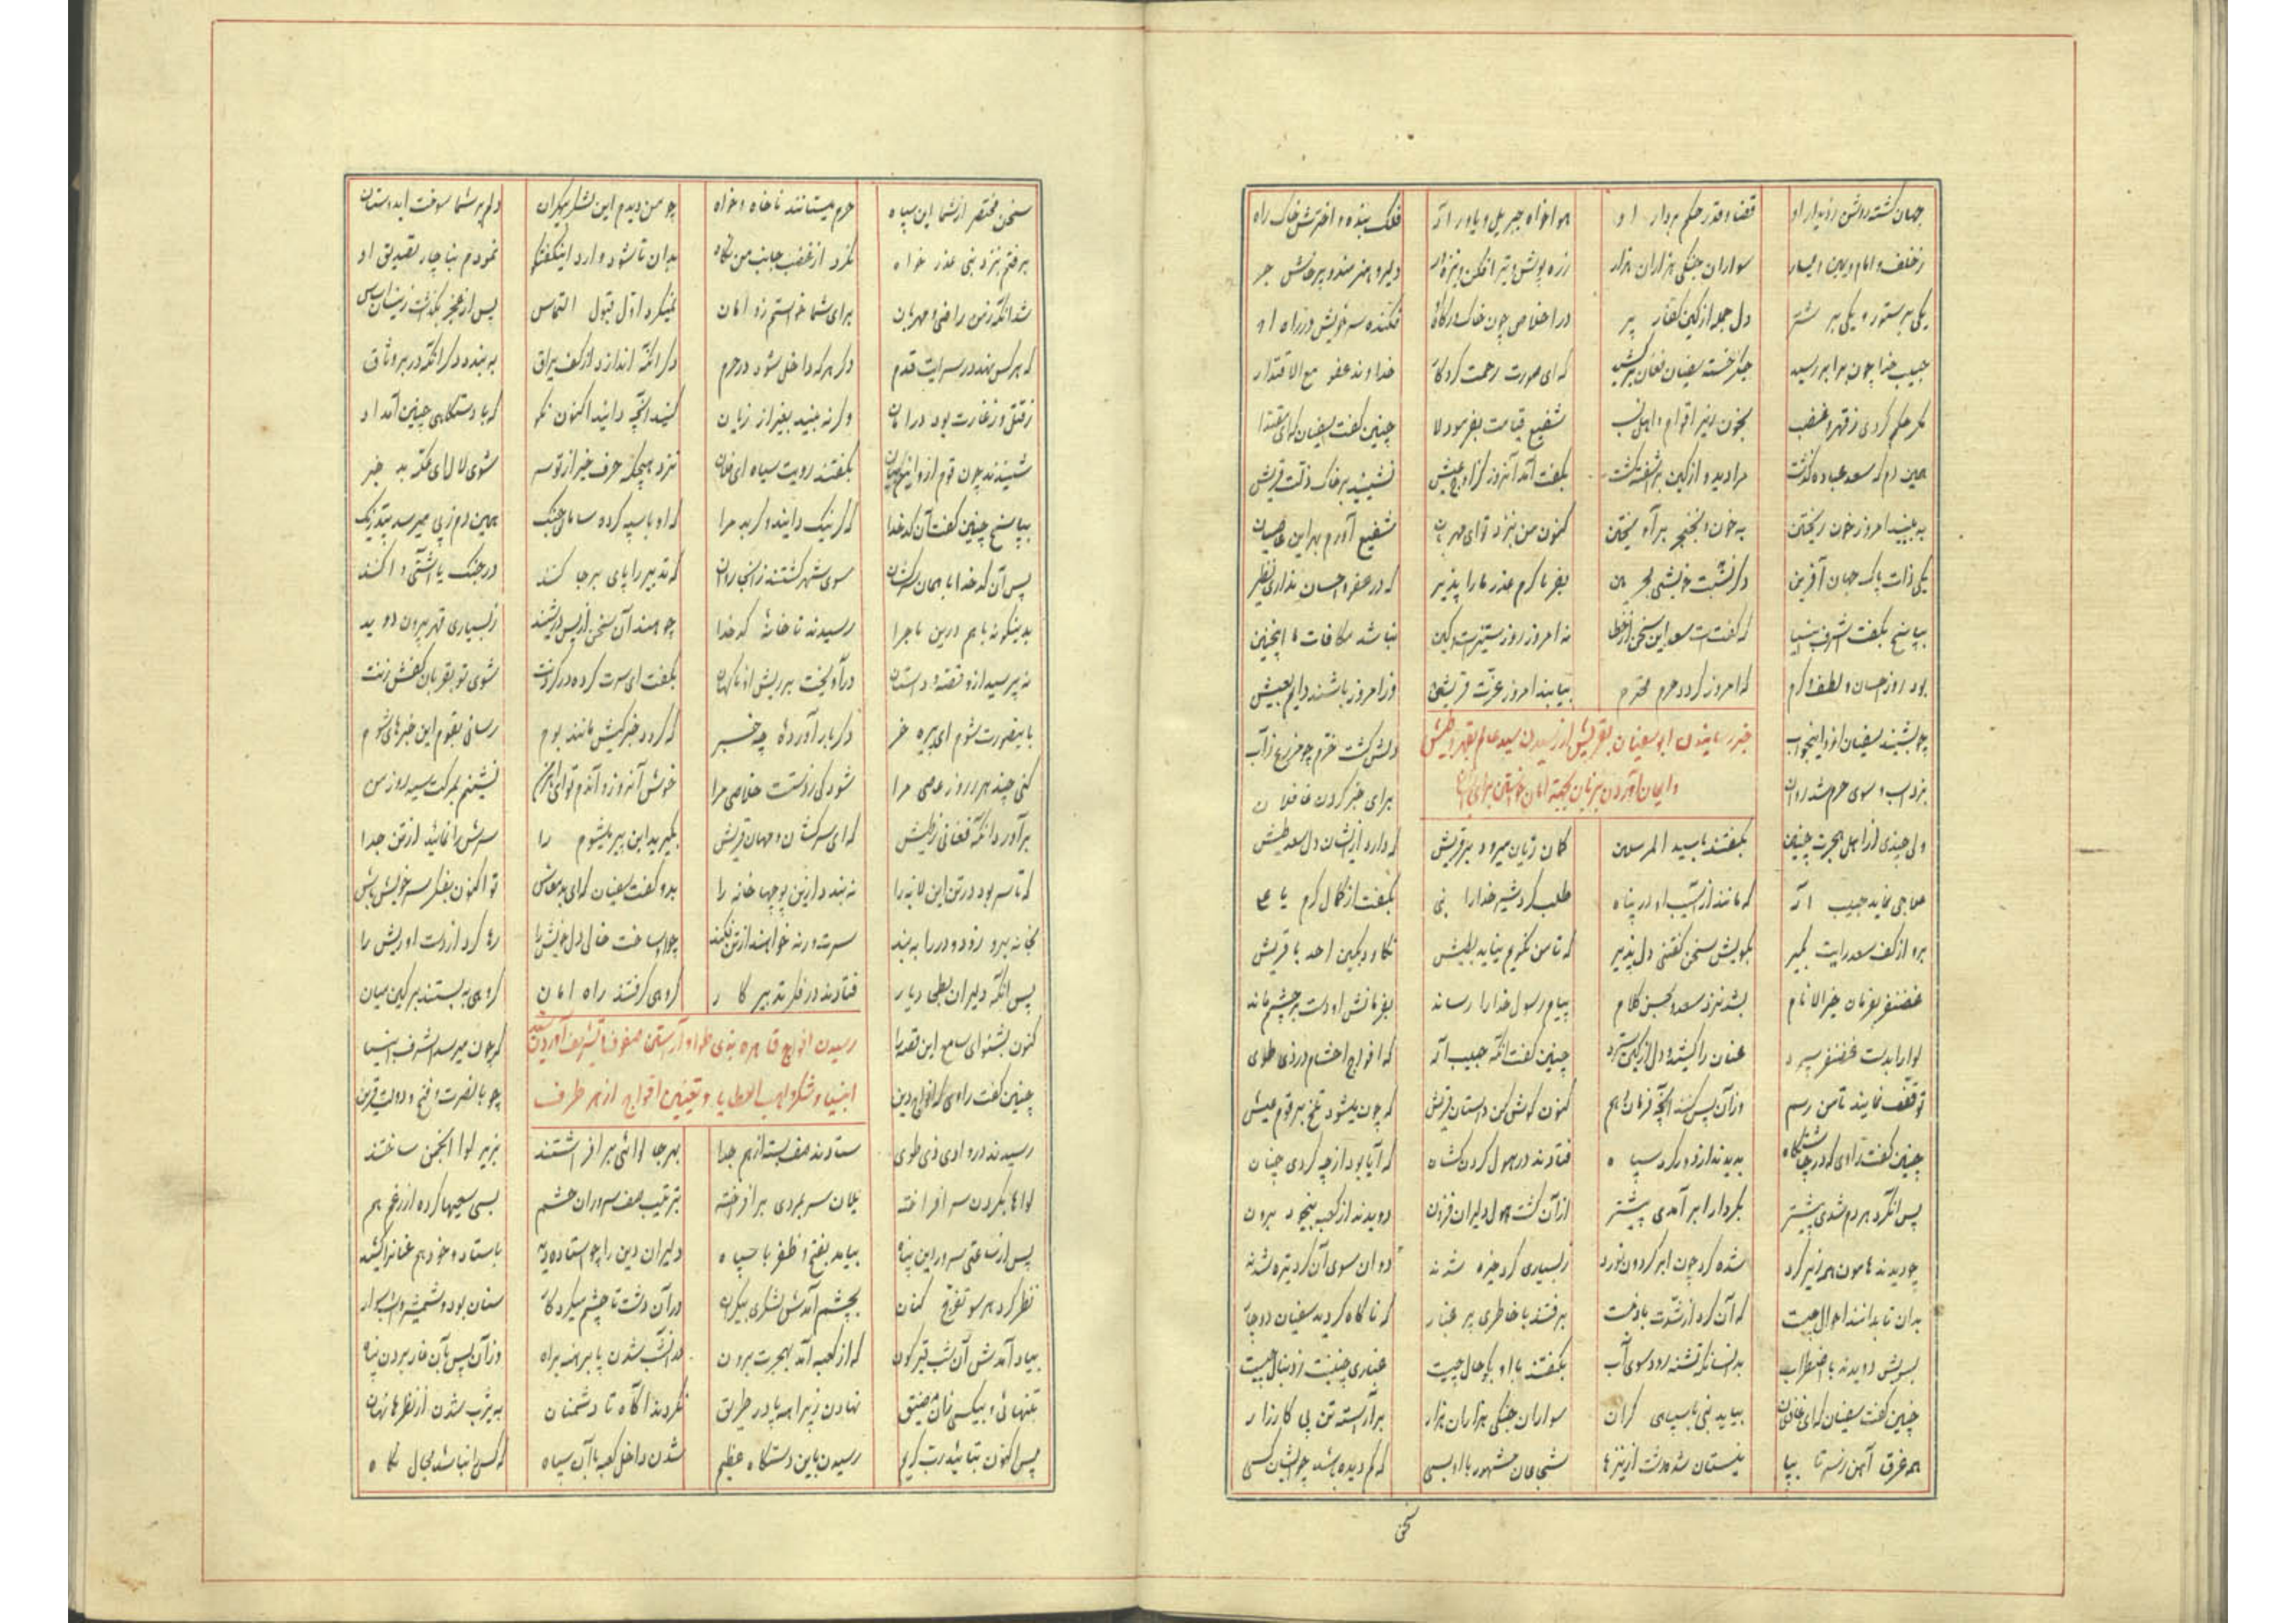 جهان گشته روشن ز دیدار او قضا و قدر حکم بردار او هواخواه جبریل و یاور اله فلک بنده و اخترش خاک راه
ز خلف و امام و یمین و یسار سواران جنگی هزاران هزار زره پوش و تیر افکن و نیزه دار دلیر و هنرمند و پرخاش خر
یکی بر ستور و یکی بر شتر دل جمله از کین کفار پر در اخلاص چون خاک درگاه فکنده سر خویش در راه او
حبیب خدا چون برابر رسید جگر خسته سفیان فغان برکشید که ای صورت رحمت کردگار خداوند عفو مع الاقتدار
مگر حکم کردی ز قهر و غضب بخون ریز اقوام و اهل نسب شفیع قیامت بفرمود لا چنین گفت سفیان که ای مقتدا
همین دم که سعد عباده گذشت مرا دید و از کین برآشفته گشت بگفت آمد آنروز کز اوج عیش نشیند بر خاک ذلت قریش
به بینید امروز خون ریختن به خون و بخنجر برآویختن کنون من بنزد تو ای مهربان شفیع آورم بهر این عاصیان
یکی ذات پاک جهان آفرین دگر نسبت خویشی بین بفرما کرم عذر ما را پذیر که در عفو و احسان نداری نظیر
بپاسخ بگفت اشرف انبیا که گفتست سعد این سخن از خطا نه امروز روز ستیزست و کین نباشد مکافات ما اینچنین
بود روز احسان و لطف و کرم که امروز گردد حرم محترم بیابند امروز عزت قریش وز امروز باشند دایم بعیش
چو بشنید سفیان ازو این جواب دلش گشت خرم چو مزرع ز آب
خبر رسانیدن ابوسفیان بقریش از رسیدن سید عالم بقهر و طیش
بزد اسب و سوی حرم شد روان برای خبر کردن غافلان
و ایمان آوردن بزبان بجهة امان خواستن برای ایشان
ولی چندی از اهل هجرت چنین بگفتند با سید المرسلین گمان زیان میرود بر قریش که دارد از ایشان دل سعد طیش
علاجی نماید حبیب اله که مانند از آسیب او در پناه طلب کرد شیر خدا را نبی بگفت از کمال کرم یا علی
برو از کف سعد رایت بگیر بگویش سخن گفتنی دل پذیر که تا من نگویم نیاید بطیش نکاود بکین احد با قریش
غضنفر بفرمان خیر الانام بشد نزد سعد و بحسن کلام پیام رسول خدا را رساند بفرمانش او دست بر چشم ماند
لوا را بدست غضنفر سپرد عنان را کشید و دل از کین سترد چنین گفت آنگه حبیب اله که افواج احشام در ذی طوی
توقف نمایند تا من رسم وز آن پس کنند آنچه فرمان دهم کنون گوش کن داستان قریش که چون میشود تلخ بر قوم عیش
چنین گفت راوی که در چاشتگاه بدیدند از دور گرد سپاه فتادند در هول گردن کشان که آیا بود از چه گردی چنان
پس آن گرد هر دم شدی بیشتر بکردار ابر آمدی پیشتر از آن گشت هول دلیران فزون دویدند از کعبه بیخود برون
چو دیدند هامون همه زیر گرد شده گرد چون ابر گردون نورد ز بسیاری گرد خیره شدند دوان سوی آن گرد تیره شدند
بدان تا بدانند احوال چیست که آن گرد از شدت باد نیست برفتند با خاطری پر غبار که ناگاه گردید سفیان دوچار
بسویش دویدند با اضطراب بدانسانکه تشنه رود سوی آب بگفتند با او بگو حال چیست غباری چنین از دنبال چیست
چنین گفت سفیان که ای غافلان بیاید نبی با سپاهی گران سواران جنگی هزاران هزار برآراسته تن پی کارزار
همه غرق آهن ز سر تا بپا نیستان شده دشت از نیزها شجاعان مشهور با او بسی که کم دیده باشد چو ایشان کسی
سخن
سخن مختصر از شما این سپاه حرم میستانند ناخواه و خواه چو من دیدم این لشکر بیکران دلم بر شما سوخت ای دوستان
برفتم بنزد نبی عذر خواه نکرد از غضب جانب من نگاه بدان تا شود وارد این گفتگو نمودم بناچار تصدیق او
شد آنگه ز من راضی و مهربان برای شما خواستم زو امان نمیکرد اول قبول التماس پس از عجز بگذشت زینسان سپاس
که هر کس نهد در سرایت قدم دگر هر که داخل شود در حرم دگر آنکه اندازد از کف یراق به بندد دگر آنکه در بر وثاق
ز قتل و ز غارت بود در امان و گر نه نبیند بغیر از زیان کنید آنچه دانید اکنون نکو که با دستگاهی چنین آمد او
شنیدند چون قوم ازو این بیان بگفتند رویت سیاه ای فلان نزد هیچگه حرف خیر از تو سر شوی لال ای مکه بد خبر
بپاسخ چنین گفت آن کدخدا که گر نیک دانید و گر بد مرا که او با سپه کرده سامان جنگ همین دم ز پی میرسد بیدرنگ
پس آن کدخدا با همان سرکشان سوی شهر گشتند زانجا روان که تدبیر را پای برجا کنند در جنگ یا آشتی وا کنند
بدینگونه با هم درین ماجرا رسیدند تا خانهٔ کدخدا چو هند آن سخن از پس در شنید ز بسیاری قهر بیرون دوید
نه پرسید ازو قصه و داستان درآویخت بر ریش او ناگهان بگفت ای سرت کرده در گردنت شوی تو بقربان کفش زنت
باینصورت شوم ای پیره خر دگر بار آوردهٔ چه خبر که گردد خبر کیش مانند بوم رسانی بقوم این خبرهای شوم
کنی چند هر روز عاصی مرا شود کی ز دستت خلاصی مرا خوش آنروز و آندم تو ای نشینم بمرگت سیه روز من
برآورد آنگه فغانی ز طیش که ای سرکشان و مهان قریش بگیرید این پیر میشوم را سرش را نمائید از تن جدا
که تا سر بود در تن این لانه را نه بندد از این پوچها خانه را بدو گفت سفیان که ای بد معاش تو اکنون بفکر سر خویش باش
بخانه برو زود و در را به بند سرت ورنه خواهند از تن فکند چو او ساخت خالی دل خویش را رها کرد از دست او ریش را
پس آنگه دلیران بطحی دیار فتادند در فکر تدبیر کار گروهی گرفتند راه امان گروهی به بستند بر کین میان
کنون بشنو ای سامع این قصه را که چون میرسد اشرف انبیا
رسیدن افواج قاهره بذی طوی و آراستن صفوف و تشریف آوردن سید
چنین گفت راوی که افواج دین چو با نصرت و فتح و دولت قرین
انبیا و شکر واهب العطایا و تعیین افواج از هر طرف
رسیدند در وادی ذی طوی ستادند صف بسته از هم جدا بهر جا لوائی برافراشتند بزیر لوا انجمن ساختند
لواها بگردن سرافراخته یلان سر بمردی برافراخته بترتیب صف سروران حشم بسی سعیها کرده از رغم هم
پس از ساعتی سرور این پناه بیامد بفتح و ظفر با سپاه دلیران دین را چو استاده دید باستاد و خود هم عنانرا کشید
نظر کرد هر سو تفرج کنان بچشم آمدش لشکری بیکران در آن دشت تا چشم میکرد کار سنان بود و شمشیر و اسب و سوار
بیاد آمدش آن شب قیرگون که از کعبه آمد بهجرت برون در آنشب شدن پا برهنه براه وز آن پس بآن غار بردن پناه
بتنهائی و بیکسی زان مضیق نهادن ز پر آبله پا در طریق نگردند آگاه تا دشمنان به یثرب شدن از نظرها نهان
پس اکنون بتائید رب کریم رسیدن باین دستگاه عظیم شدن داخل کعبه با آن سپاه که کس را نباشد مجال نگاه